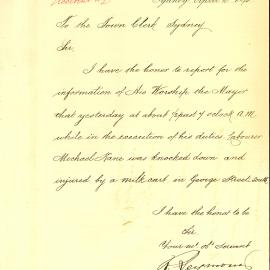 To the Town Clerk, Sydney
Sir
I have the honor to report for the
information of His Worship the Mayor
that yesterday at about ½ past 7 o'clock A.M
while in the execution of his duties Labourer
Michael Kane was knocked down and
injured by a milk cart in George Street South
I have the honor to be
Sir
Your
Servant